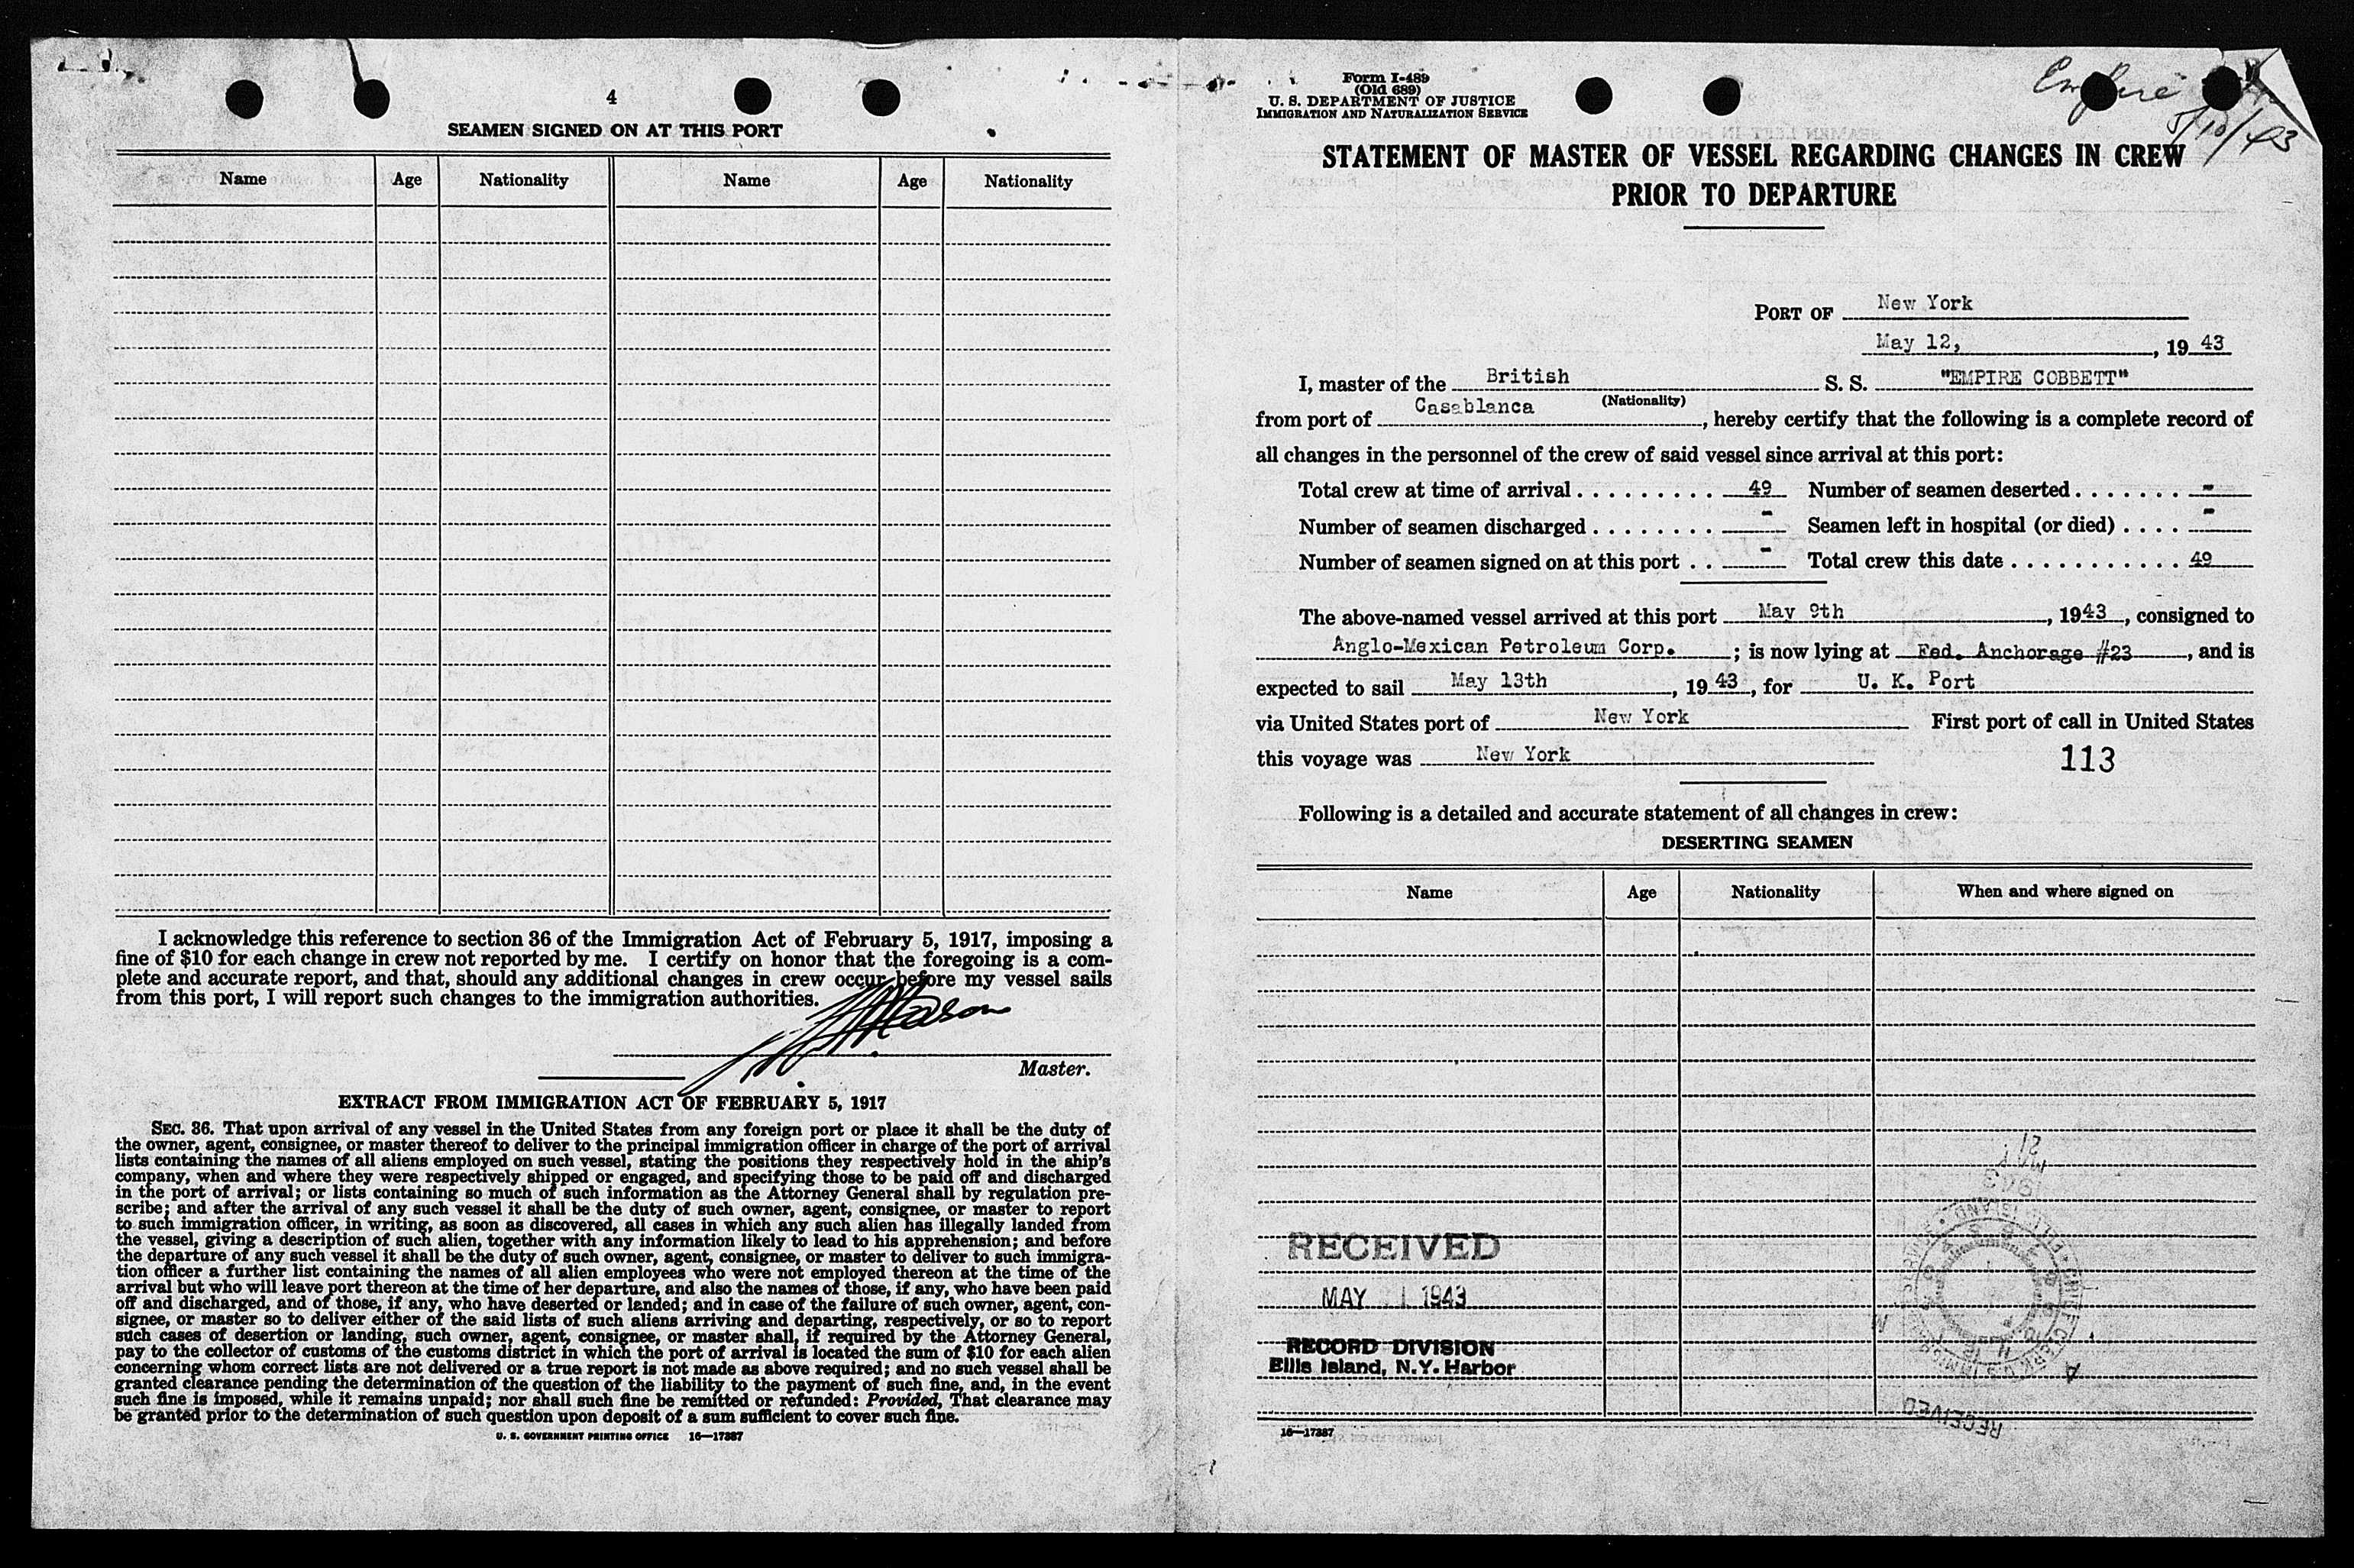 4
SEAMEN SIGNED ON AT THIS PORT
Name Age Nationality Name Age Nationality
I acknowledge this reference to section 36 of the Immigration Act of February 5, 1917, imposing a
fine of $10 for each change in crew not reported by me. I certify on honor that the foregoing is a com-
plete and accurate report, and that, should any additional changes in crew occur before my vessel sails
from this port, I will report such changes to the immigration authorities.
Mason
Master.
EXTRACT FROM IMMIGRATION ACT OF FEBRUARY 5, 1917
SEC. 36. That upon arrival of any vessel in the United States from any foreign port or place it shall be the duty of
the owner, agent, consignee, or master thereof to deliver to the principal immigration officer in charge of the port of arrival
lists containing the names of all aliens employed on such vessel, stating the positions they respectively hold in the ship's
company, when and where they were respectively shipped or engaged, and specifying those to be paid off and discharged
in the port of arrival; or lists containing so much of such information as the Attorney General shall by regulation pre-
scribe; and after the arrival of any such vessel it shall be the duty of such owner, agent, consignee, or master to report
to such immigration officer, in writing, as soon as discovered, all cases in which any such alien has illegally landed from
the vessel, giving a description of such alien, together with any information likely to lead to his apprehension; and before
the departure of any such vessel it shall be the duty of such owner, agent, consignee, or master to deliver to such immigra-
tion officer a further list containing the names of all alien employees who were not employed thereon at the time of the
arrival but who will leave port thereon at the time of her departure, and also the names of those, if any, who have been paid
off and discharged, and of those, if any, who have deserted or landed; and in case of the failure of such owner, agent, con-
signee, or master so to deliver either of the said lists of such aliens arriving and departing, respectively, or so to report
such cases of desertion or landing, such owner, agent, consignee, or master shall, if required by the Attorney General,
pay to the collector of customs of the customs district in which the port of arrival is located the sum of $10 for each alien
concerning whom correct lists are not delivered or a true report is not made as above required; and no such vessel shall be
granted clearance pending the determination of the question of the liability to the payment of such fine, and, in the event
such fine is imposed, while it remains unpaid; nor shall such fine be remitted or refunded: Provided, That clearance may
be granted prior to the determination of such question upon deposit of a sum sufficient to cover such fine.
U. S. GOVERNMENT PRINTING OFFICE 16—17387
Form I-489
(Old 689)
U. S. DEPARTMENT OF JUSTICE
IMMIGRATION AND NATURALIZATION SERVICE
Empire
5/10/43
STATEMENT OF MASTER OF VESSEL REGARDING CHANGES IN CREW
PRIOR TO DEPARTURE
PORT OF New York
May 12, , 19 43
I, master of the British S. S. "EMPIRE COBBETT"
(Nationality)
from port of Casablanca , hereby certify that the following is a complete record of
all changes in the personnel of the crew of said vessel since arrival at this port:
Total crew at time of arrival . . . . . . . . . 49 Number of seamen deserted . . . . . . . -
Number of seamen discharged . . . . . . . . - Seamen left in hospital (or died) . . . . -
Number of seamen signed on at this port . . - Total crew this date . . . . . . . . . . . 49
The above-named vessel arrived at this port May 9th , 1943 , consigned to
Anglo-Mexican Petroleum Corp. ; is now lying at Fed. Anchorage #23 , and is
expected to sail May 13th , 19 43 , for U. K. Port
via United States port of New York First port of call in United States
this voyage was New York
113
Following is a detailed and accurate statement of all changes in crew:
DESERTING SEAMEN
Name Age Nationality When and where signed on
RECEIVED
MAY 1 1943
RECORD DIVISION
Ellis Island, N.Y. Harbor
RECEIVED
16—17387